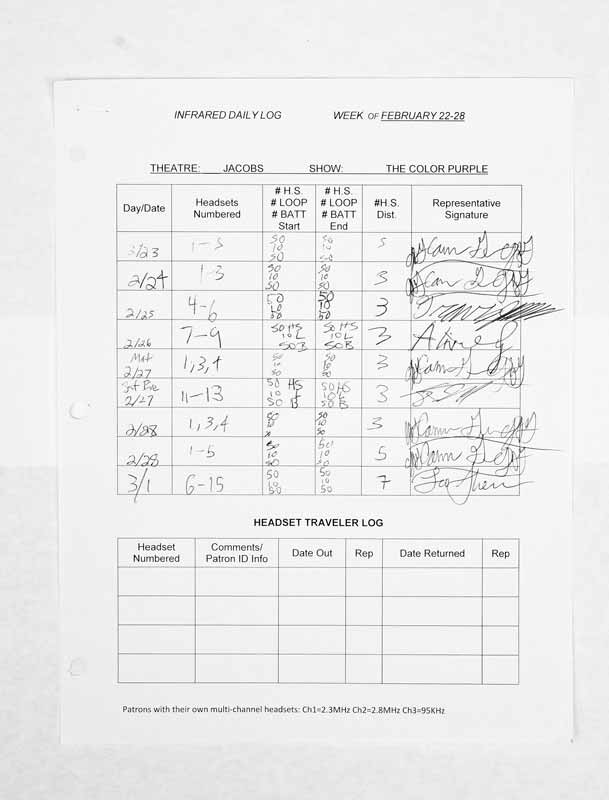 INFRARED DAILY LOG WEEK OF FEBRUARY 22-28
THEATRE: JACOBS SHOW: THE COLOR PURPLE
Day/Date Headsets Numbered # H.S. # LOOP # BATT Start # H.S. # LOOP # BATT End #H.S. Dist. Representative Signature
2/23 1-5 50 10 50 50 10 50 5
2/24 1-3 50 10 50 50 10 50 3
2/25 4-6 50 10 50 50 10 50 3
2/26 7-9 50 HS 10 L 50 B 50 HS 10 L 50 B 3
Mat 2/27 1,3,4 50 10 50 50 10 50 3
2/27 11-13 50 HS 10 50 B 50 HS 10 L 50 B 3
2/28 1,3,4 50 10 50 50 3
2/28 1-5 50 10 50 50 10 50 5
3/1 6-15 50 10 50 50 10 50 7
HEADSET TRAVELER LOG
Headset Numbered Comments/ Patron ID Info Date Out Rep Date Returned Rep
Patrons with their own multi-channel headsets: Ch1=2.3MHz Ch2=2.8MHz Ch3=95KHz